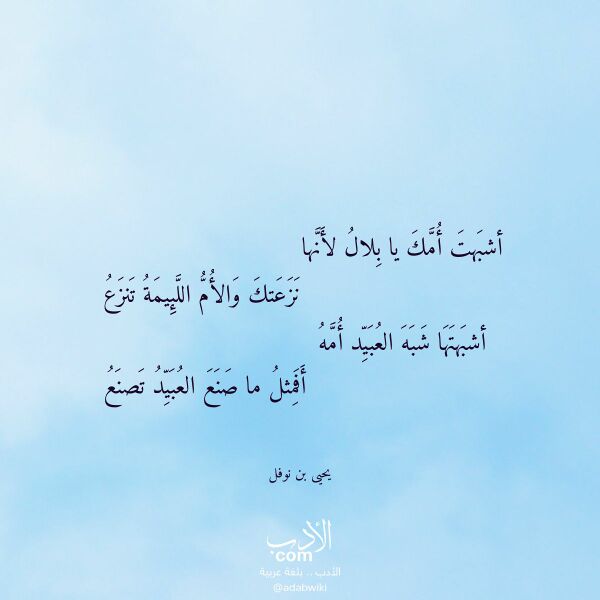 أشبَهتَ أُمَّكَ يا بِلالُ لأَنَّها
نَزَعَتكَ وَالأُمُّ اللَّئِيمَةُ تَنزَعُ
أشبَهتَهَا شَبَهَ العُبَيِّد أُمَّهُ
أَفَمِثلُ ما صَنَعَ العُبَيِّدُ تَصنَعُ
يحيى بن نوفل
الأدب
com
الأدب .. بلغة عربية
@adabwiki